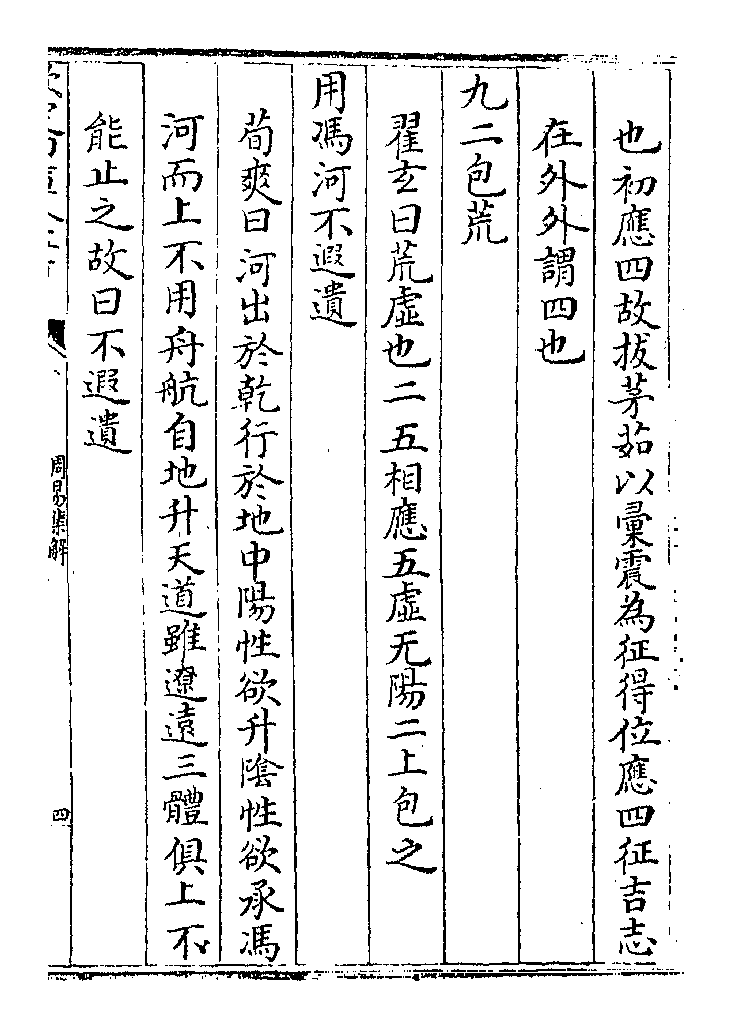 也初應四故拔茅茹以彚震為征得位應四征吉志
在外外謂四也
九二包荒
翟玄曰荒虛也二五相應五虛无陽二上包之
用馮河不遐遺
荀爽曰河出於乾行於地中陽性欲升隂性欲承馮
河而上不用舟航自地升天道雖遼遠三體俱上不
能止之故曰不遐遺
周易集解
四